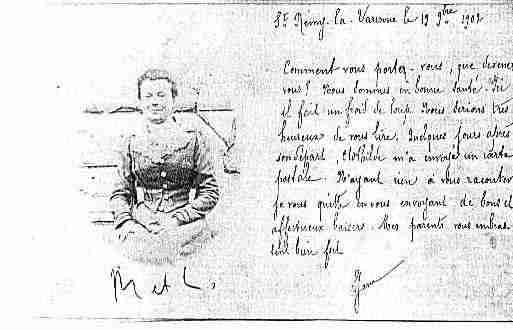 St Rémy-la-Varenne le 19 9bre 1902
Comment vous portez-vous, que devenez
vous? Nous sommes en bonne santé. Ici
il fait un froid de loup. Nous serions très
heureux de vous lire. Quelques jours après
son départ, Clothilde m'a envoyé un carte
postale. N'ayant rien à vous raconter
je vous quitte en vous envoyant de bons et
affectueux baisers. Mes parents vous embras-
sent bien fort
M et C.